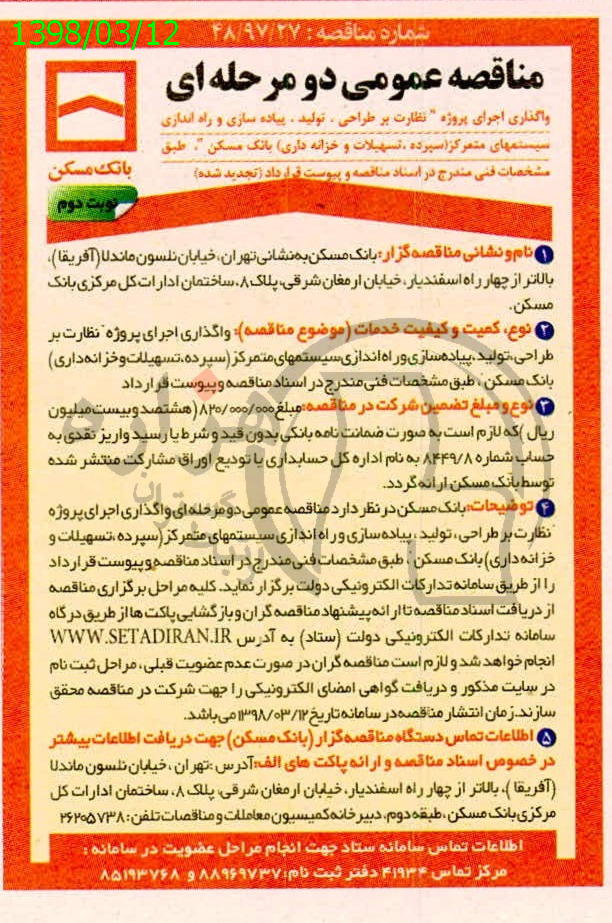 1398/03/12
شماره مناقصه : ۴۸/۹۷/۲۷
مناقصه عمومی دو مرحله ای
بانک مسکن
نوبت دوم
واگذاری اجرای پروژه " نظارت بر طراحی ، تولید ، پیاده سازی و راه اندازی
سیستمهای متمرکز(سپرده ،تسهیلات و خزانه داری) بانک مسکن "، طبق
مشخصات فنی مندرج در اسناد مناقصه و پیوست قرارداد (تجدید شده)
۱ نام و نشانی مناقصه گزار: بانک مسکن به نشانی تهران ، خیابان نلسون ماندلا (آفریقا)،
بالاتر از چهار راه اسفندیار، خیابان ارمغان شرقی، پلاک ۸، ساختمان ادارات کل مرکزی بانک
مسکن.
۲ نوع، کمیت و کیفیت خدمات (موضوع مناقصه): واگذاری اجرای پروژه " نظارت بر
طراحی،تولید،پیاده سازی و راه اندازی سیستمهای متمرکز (سپرده،تسهیلات و خزانه داری)
بانک مسکن " ، طبق مشخصات فنی مندرج در اسناد مناقصه و پیوست قرارداد
۳ نوع و مبلغ تضمین شرکت در مناقصه: مبلغ ۸۲۰/۰۰۰/۰۰۰ (هشتصد و بیست میلیون
ریال )که لازم است به صورت ضمانت نامه بانکی بدون قید و شرط یا رسید واریز نقدی به
حساب شماره ۸۴۴۹/۸ به نام اداره کل حسابداری یا تودیع اوراق مشارکت منتشر شده
توسط بانک مسکن ارائه گردد.
۴ توضیحات: بانک مسکن در نظر دارد مناقصه عمومی دو مرحله ای واگذاری اجرای پروژه
"نظارت بر طراحی ، تولید ، پیاده سازی و راه اندازی سیستمهای متمرکز (سپرده ،تسهیلات و
خزانه داری) بانک مسکن "، طبق مشخصات فنی مندرج در اسناد مناقصه و پیوست قرارداد
را از طریق سامانه تدارکات الکترونیکی دولت برگزار نماید. کلیه مراحل برگزاری مناقصه
از دریافت اسناد مناقصه تا ارائه پیشنهاد مناقصه گران و بازگشایی پاکت ها از طریق درگاه
سامانه تدارکات الکترونیکی دولت (ستاد) به آدرس WWW.SETADIRAN.IR
انجام خواهد شد و لازم است مناقصه گران در صورت عدم عضویت قبلی ، مراحل ثبت نام
در سایت مذکور و دریافت گواهی امضای الکترونیکی را جهت شرکت در مناقصه محقق
سازند. زمان انتشار مناقصه در سامانه تاریخ ۱۳۹۸/۰۳/۱۲ می باشد.
۵ اطلاعات تماس دستگاه مناقصه گزار (بانک مسکن) جهت دریافت اطلاعات بیشتر
در خصوص اسناد مناقصه و ارائه پاکت های الف: آدرس :تهران ، خیابان نلسون ماندلا
(آفریقا )، بالاتر از چهار راه اسفندیار، خیابان ارمغان شرقی، پلاک ۸، ساختمان ادارات کل
مرکزی بانک مسکن ، طبقه دوم، دبیرخانه کمیسیون معاملات و مناقصات تلفن: ۲۶۲۰۵۷۳۸
اطلاعات تماس سامانه ستاد جهت انجام مراحل عضویت در سامانه :
مرکز تماس ۴۱۹۳۴ دفتر ثبت نام: ۸۸۹۶۹۷۳۷ و ۸۵۱۹۳۷۶۸